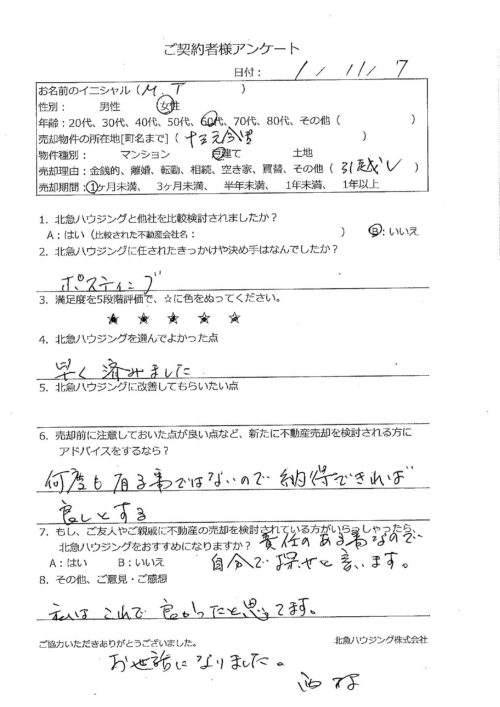 ご契約者様アンケート
日付： 1 / 11 / 7
お名前のイニシャル（ M. T ）
性別： 男性 女性
年齢：20代、30代、40代、50代、60代、70代、80代、その他（ ）
売却物件の所在地[町名まで]（ ）
物件種別： マンション 戸建て 土地
売却理由：金銭的、離婚、転勤、相続、空き家、買替、その他（ 引越し ）
売却期間：1ヶ月未満、 3ヶ月未満、 半年未満、 1年未満、 1年以上
1. 北急ハウジングと他社を比較検討されましたか？
A：はい（比較された不動産会社名： ） B：いいえ
2. 北急ハウジングに任されたきっかけや決め手はなんでしたか？
ポスティング
3. 満足度を5段階評価で、☆に色をぬってください。
★ ★ ★ ★ ★
4. 北急ハウジングを選んでよかった点
早く済みました
5. 北急ハウジングに改善してもらいたい点
6. 売却前に注意しておいた点が良い点など、新たに不動産売却を検討される方に
アドバイスをするなら？
何度も有る事ではないので納得できれば
良しとする
7. もし、ご友人やご親戚に不動産の売却を検討されている方がいらっしゃったら、
北急ハウジングをおすすめになりますか？ 責任のある事なので
A：はい B：いいえ 自分で探せと言います。
8. その他、ご意見・ご感想
私はこれで良かったと思ってます。
ご協力いただきありがとうございました。 北急ハウジング株式会社
お世話になりました。